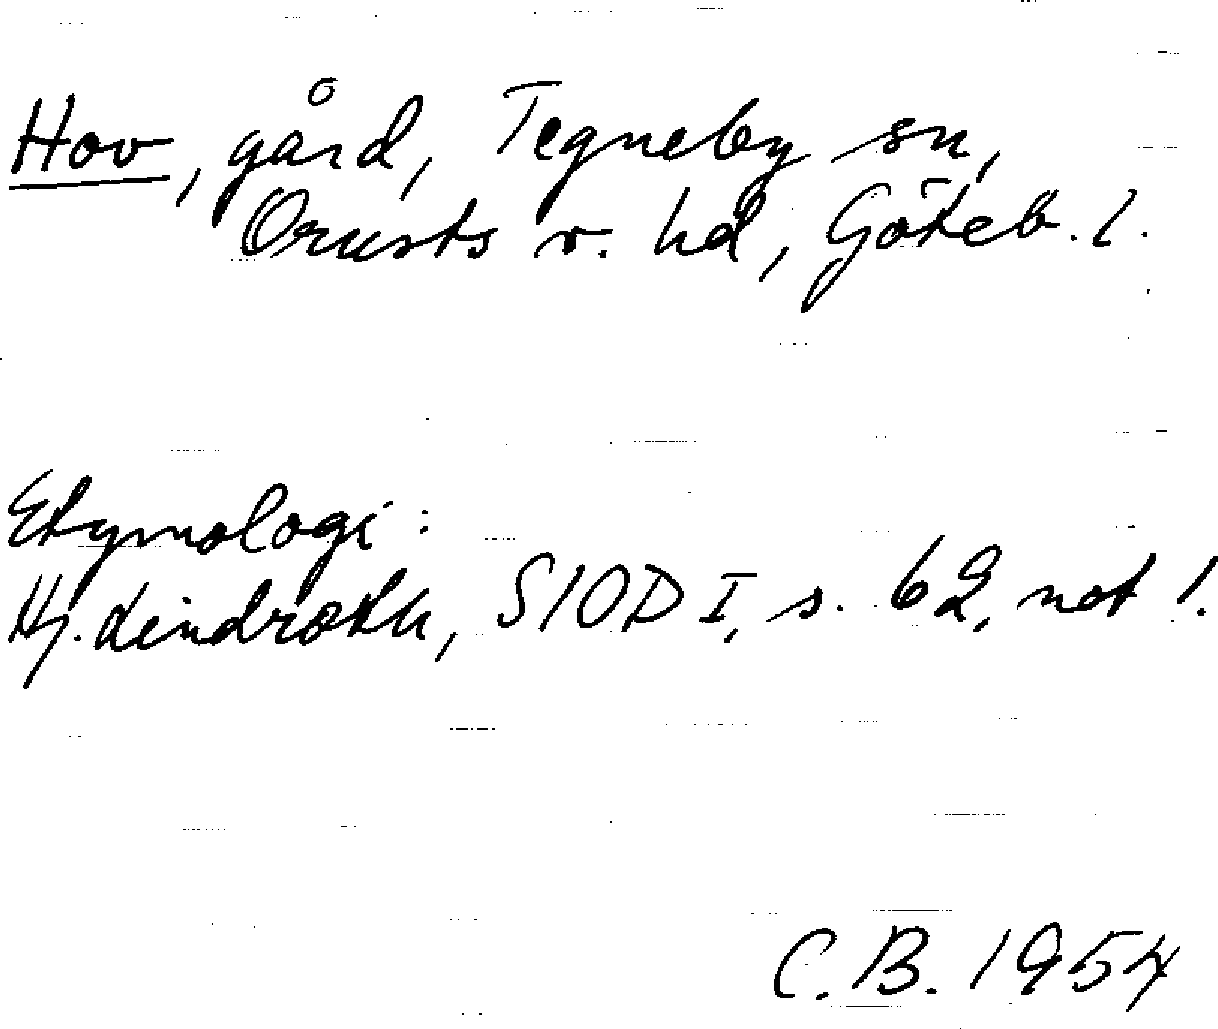 Hov, gård, Tegneby sn,
Orusts v. hd, Göteb. l.
Etymologi:
Hj. Lindroth, SIOD I, s. 62, not 1.
C.B. 1954